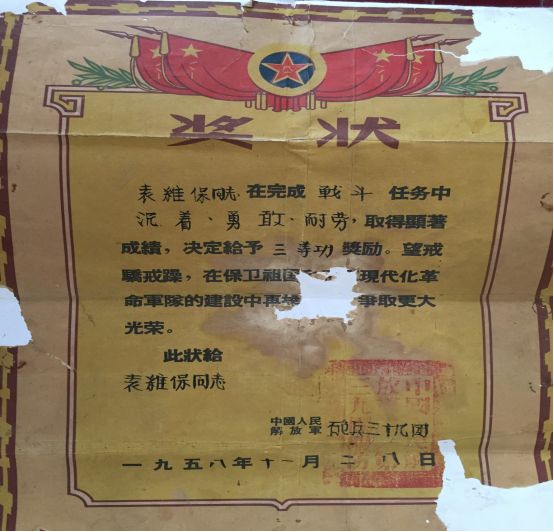 奖状
袁維保同志 在完成 战斗 任务中
沉着、勇敢、耐劳，取得顯著
成績，决定給予 三等功 獎励。望戒
驕戒躁，在保卫祖国 現代化革
命軍隊的建設中再 爭取更大
光荣。
此狀給
袁維保同志
中國人民
解放軍 砲兵三十九团
一九五八年十一月二八日